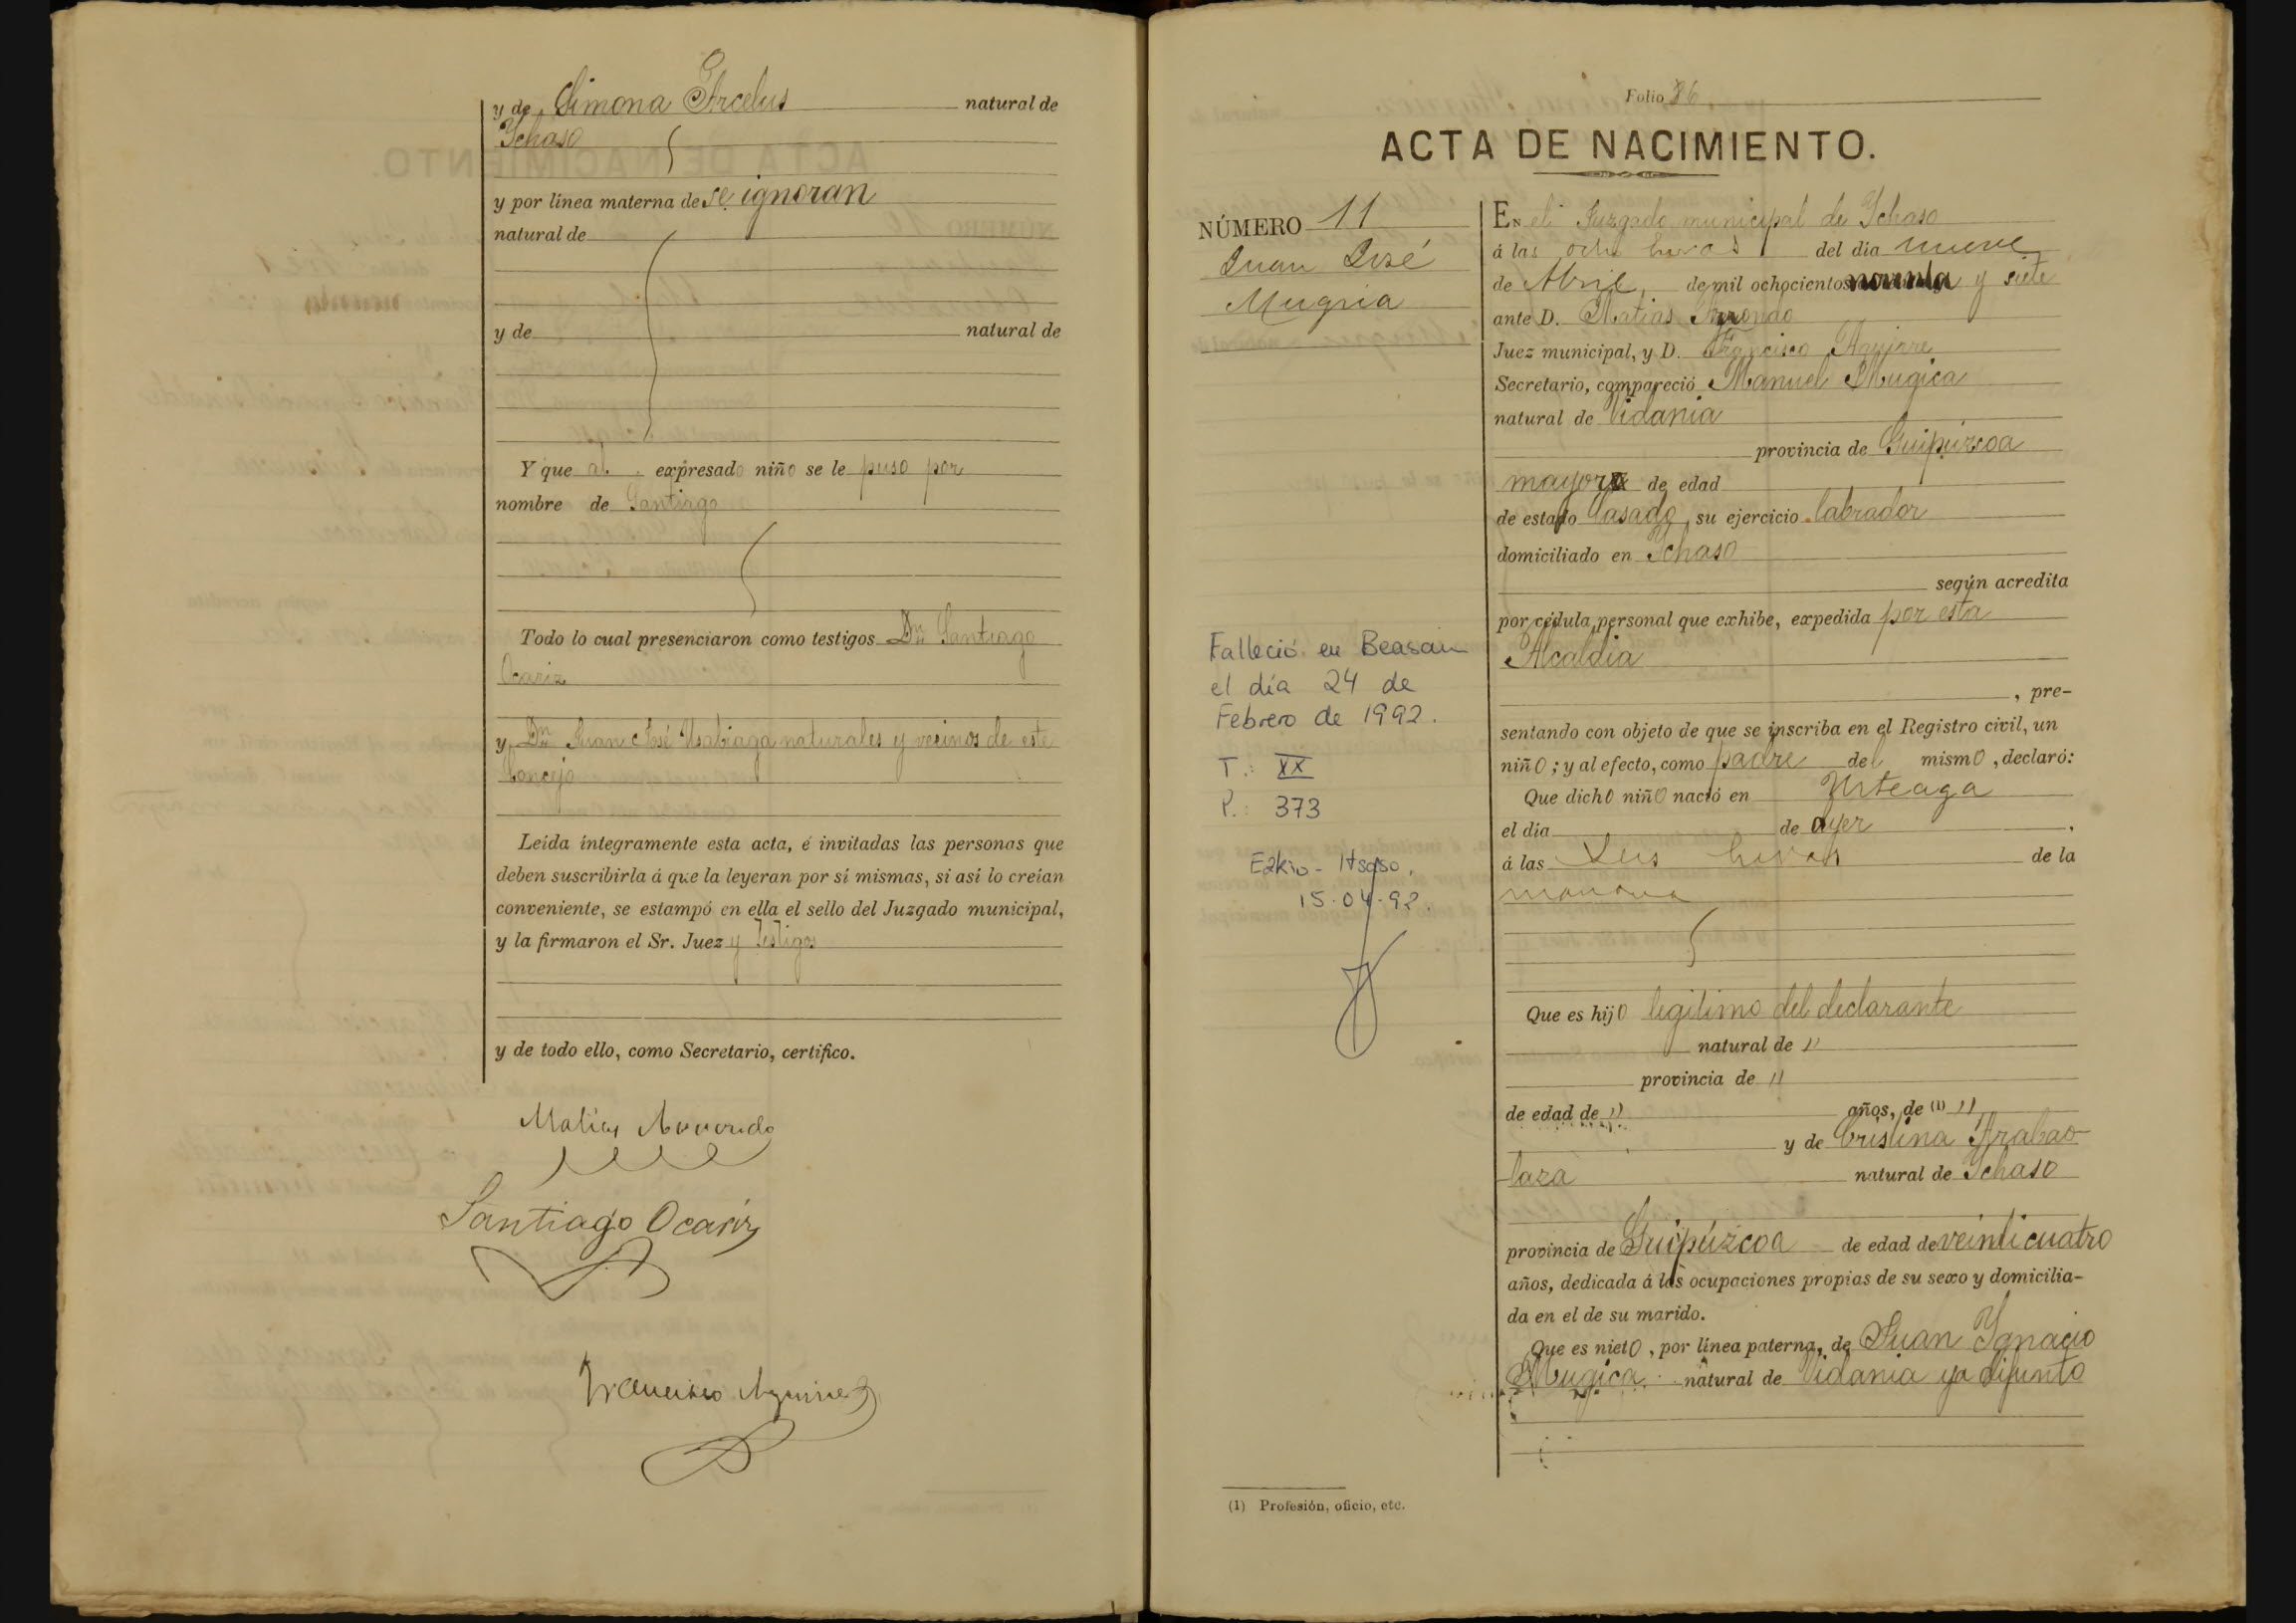 y de Simona Arcelus natural de
Ychaso
y por línea materna de se ignoran
natural de
y de natural de
Y que al expresado niño se le puso por
nombre de Santiago
Todo lo cual presenciaron como testigos Dn Santiago
Ocariz
y Dn Juan José Usabiaga naturales y vecinos de este
Concejo
Leída íntegramente esta acta, é invitadas las personas que
deben suscribirla á que la leyeran por sí mismas, si así lo creían
conveniente, se estampó en ella el sello del Juzgado municipal,
y la firmaron el Sr. Juez y testigos
y de todo ello, como Secretario, certifico.
Matias
Santiago Ocariz
Francisco Aguirre
Folio 86
ACTA DE NACIMIENTO.
NÚMERO 11
Juan José
Mugica
En el Juzgado municipal de Ychaso
á las ocho horas del dia nueve
de Abril de mil ochocientos noventa y siete
ante D. Matias
Juez municipal, y D. Francisco Aguirre
Secretario, compareció Manuel Mugica
natural de Vidania
provincia de Guipúzcoa
mayor de edad
de estado Casado, su ejercicio labrador
domiciliado en Ychaso
según acredita
por cédula personal que exhibe, expedida por esta
Alcaldia
, pre-
sentando con objeto de que se inscriba en el Registro civil, un
niño; y al efecto, como padre del mismo, declaró:
Que dicho niño nació en Urteaga
el día de ayer
á las seis horas de la
mañana
Que es hijo legitimo del declarante
natural de "
provincia de "
de edad de " años, de (1) "
y de Cristina Arabao-
laza natural de Ychaso
provincia de Guipúzcoa de edad de veinticuatro
años, dedicada á las ocupaciones propias de su sexo y domicilia-
da en el de su marido.
Que es nieto, por línea paterna, de Juan Ygnacio
Mugica natural de Vidania ya difunto
Falleció en Beasain
el día 24 de
Febrero de 1992.
T.: XX
P.: 373
Ezkio-Itsaso,
15-04-92.
(1) Profesión, oficio, etc.